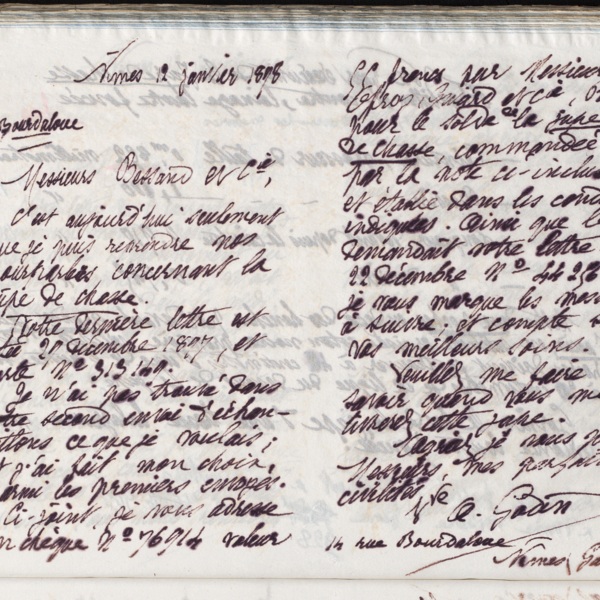 Nîmes 12 janvier 1898
Bourdaloue
Messieurs Bessand et Cie,
c'est aujourd'hui seulement
que je puis reprendre nos
pourparlers concernant la
jupe de chasse.
Votre dernière lettre est
20 décembre 1897, et
porte N° 313140.
Je n'ai pas trouvé dans
votre second envoi d'échan-
tillons ce que je voulais;
et j'ai fait mon choix,
parmi les premiers envoyés.
Ci-joint, je vous adresse
un chèque N° 76914 valeur
francs par Messieurs
et Cie,
pour le solde de la jupe
de chasse, commandée
par la note ci-incluse
et établie dans les cond
indiquées. Ainsi que le
demandait votre lettre
22 décembre N°
je vous marque les mes
à suivre; et compte s
vos meilleurs soins.
Veuillez me faire
savoir quand vous me
livrerez cette jupe.
Agréez, je vous p
Messieurs, mes
civilités.
Vve A. Godin
14 rue Bourdaloue
Nîmes, Ga